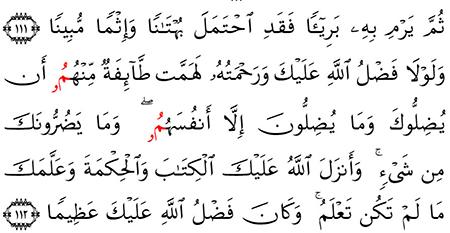 ثُمَّ يَرْمِ بِهِۦ بَرِيٓـًٔا فَقَدِ ٱحْتَمَلَ بُهْتَٰنًا وَإِثْمًا مُّبِينًا ﴿١١١﴾
وَلَوْلَا فَضْلُ ٱللَّهِ عَلَيْكَ وَرَحْمَتُهُۥ لَهَمَّت طَّآئِفَةٌ مِّنْهُمُۥٓ أَن
يُضِلُّوكَ وَمَا يُضِلُّونَ إِلَّآ أَنفُسَهُمُۥ ۖ وَمَا يَضُرُّونَكَ
مِن شَىْءٍ ۚ وَأَنزَلَ ٱللَّهُ عَلَيْكَ ٱلْكِتَٰبَ وَٱلْحِكْمَةَ وَعَلَّمَكَ
مَا لَمْ تَكُن تَعْلَمُ ۚ وَكَانَ فَضْلُ ٱللَّهِ عَلَيْكَ عَظِيمًا ﴿١١٢﴾